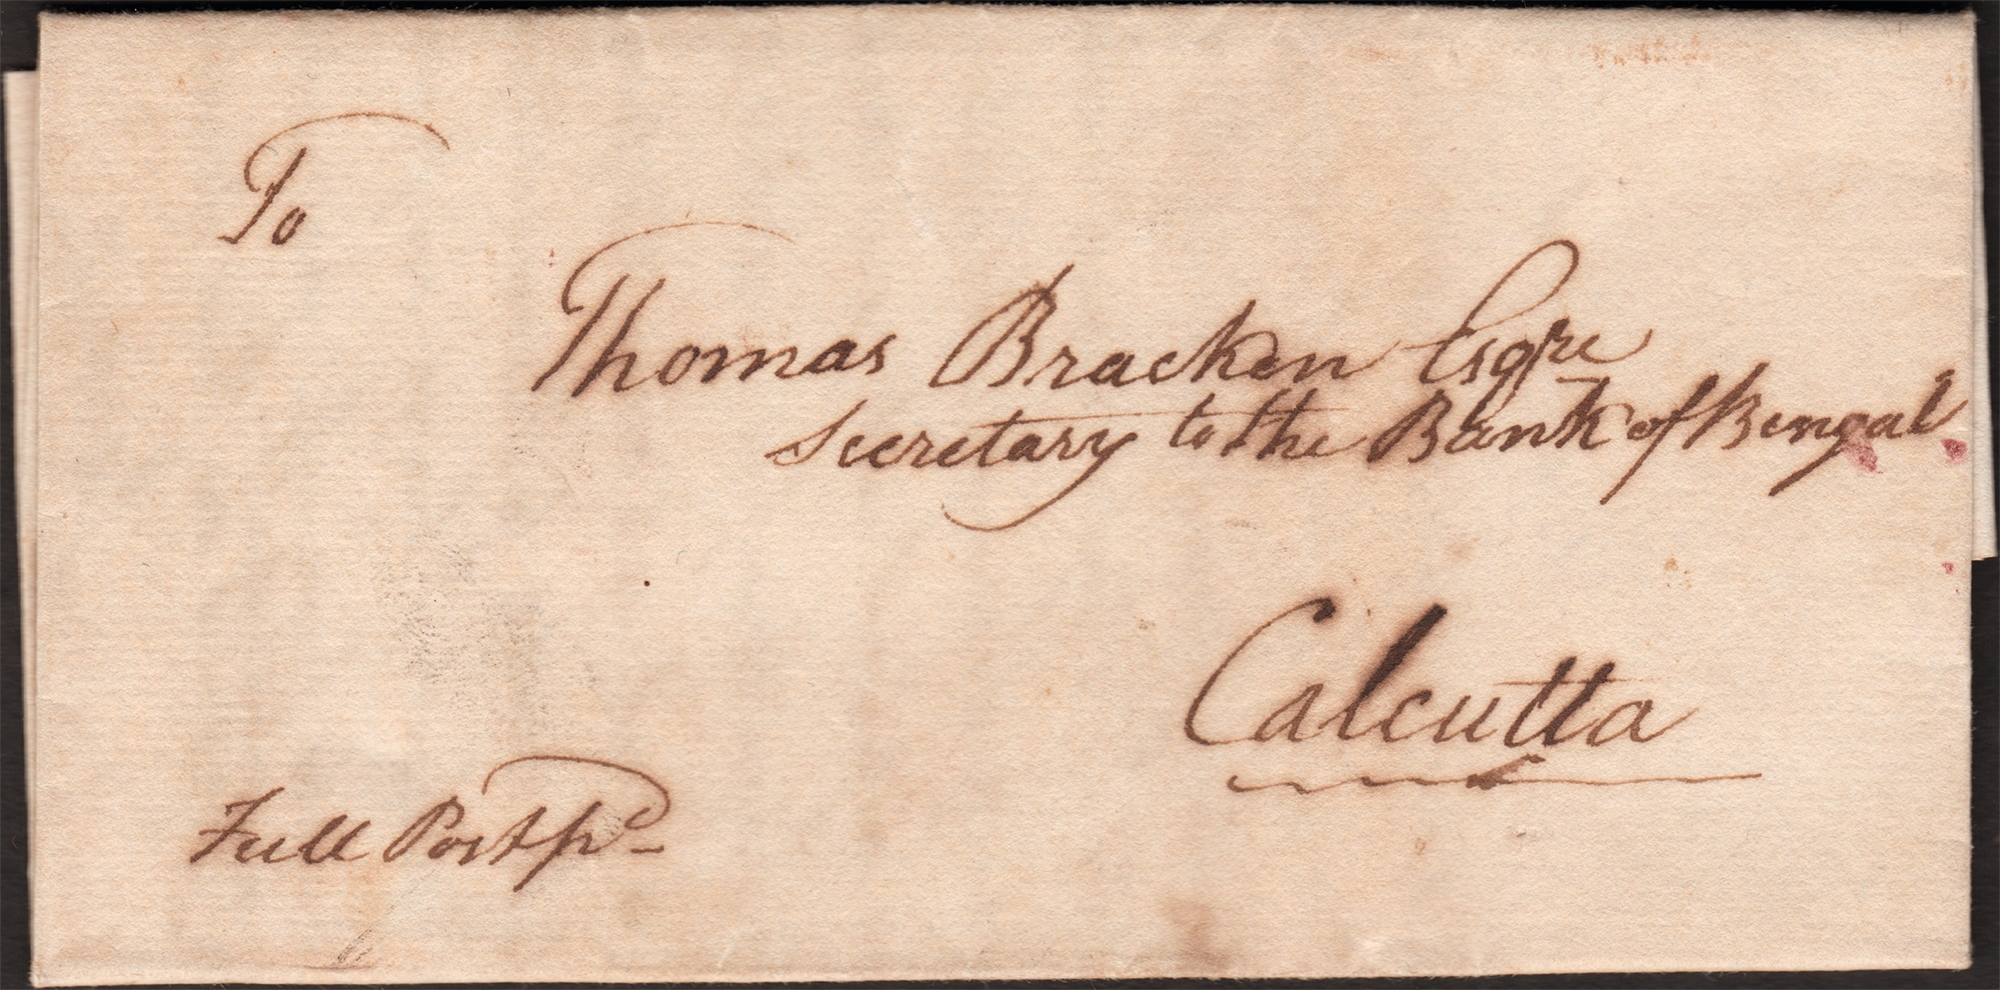 To
Thomas Bracken Esqre
Secretary to the Bank of Bengal
Calcutta
Full Post pd